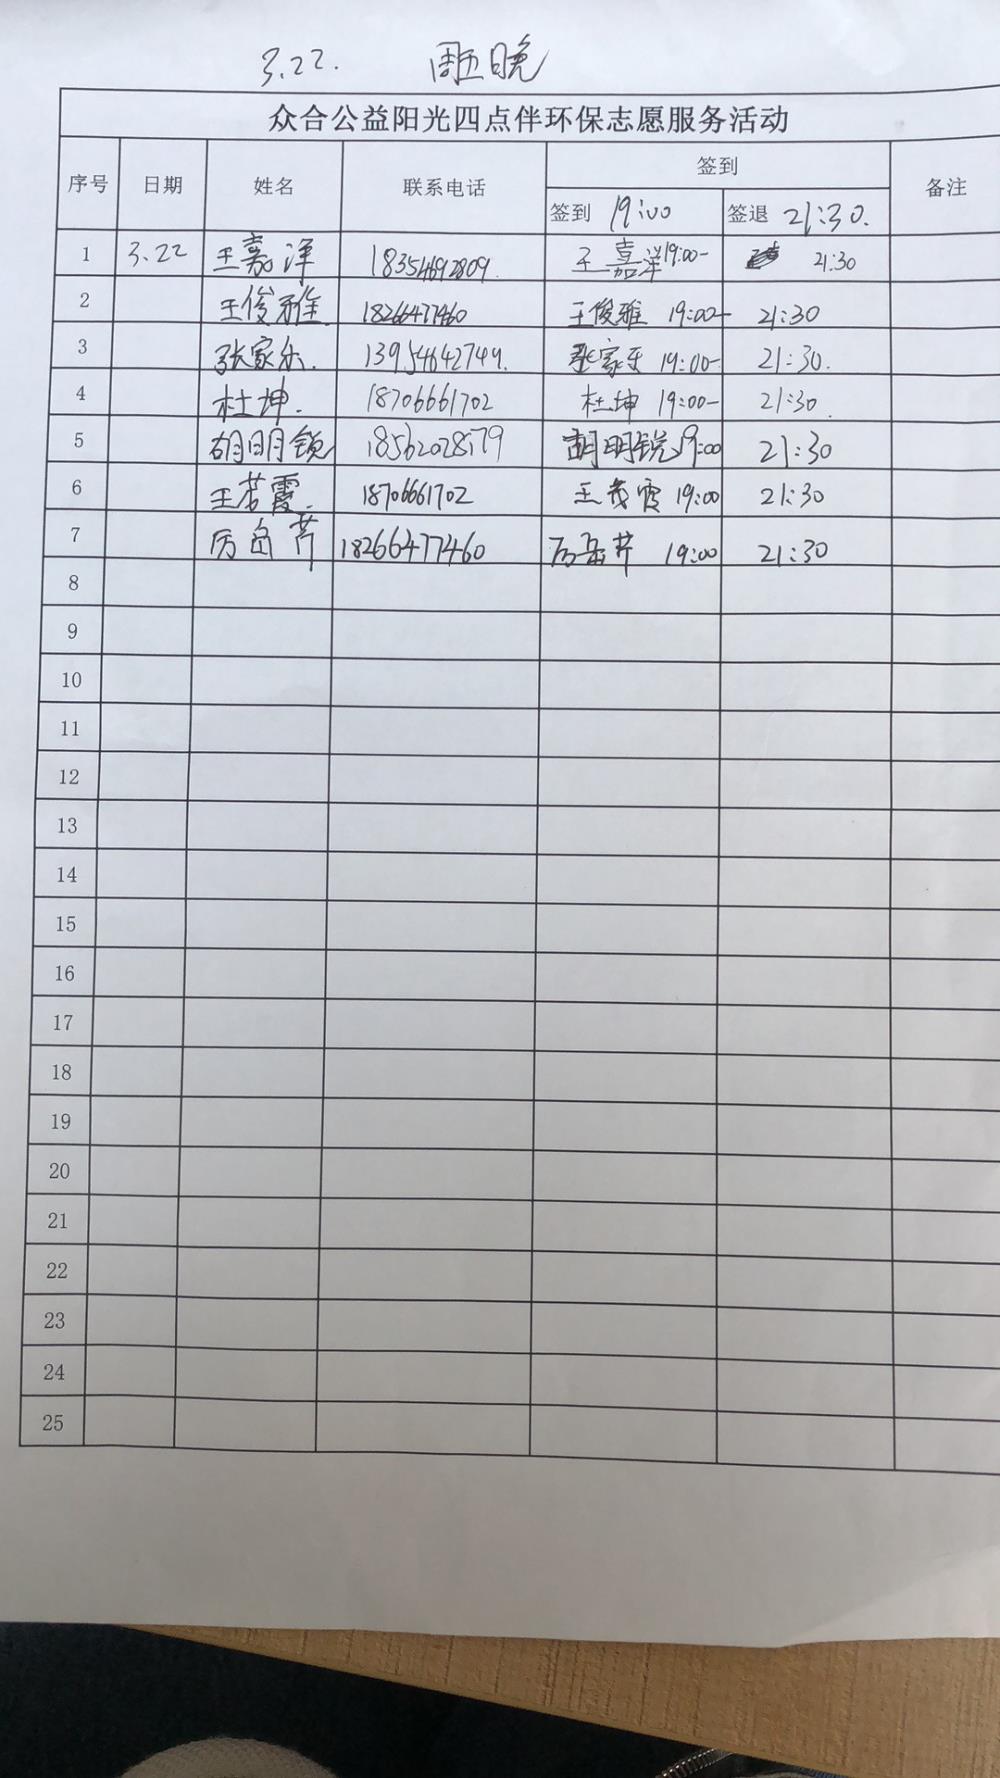 3.22. 周五晚
众合公益阳光四点伴环保志愿服务活动
序号 日期 姓名 联系电话 签到 备注
签到 19:00 签退 21:30.
1 3.22 王嘉洋 18354692809. 王嘉洋 19:00- 21:30
2 王俊雅 18266477460 王俊雅 19:00- 21:30
3 张家乐. 13954642749. 张家乐 19:00- 21:30.
4 杜坤. 18706661702 杜坤 19:00- 21:30.
5 胡明锐 18562028579 胡明锐 19:00 21:30
6 18706661702 19:00 21:30
7 厉岳芹 18266477460 厉岳芹 19:00 21:30
8
9
10
11
12
13
14
15
16
17
18
19
20
21
22
23
24
25